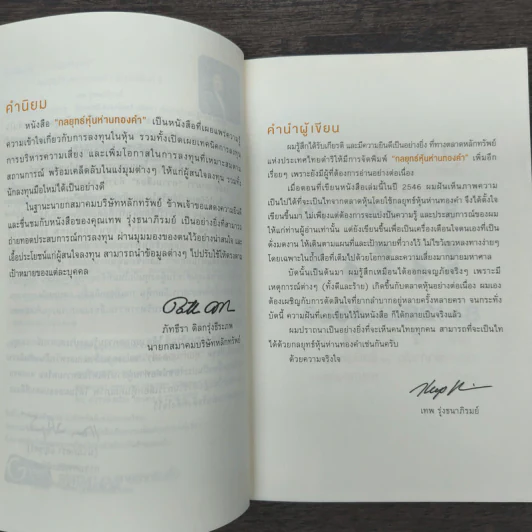 คำนิยม
หนังสือ "กลยุทธ์หุ้นห่านทองคำ" เป็นหนังสือที่เผยแพร่ความรู้
ความเข้าใจเกี่ยวกับการลงทุนในหุ้น รวมทั้งเปิดเผยเทคนิคการลงทุน
การบริหารความเสี่ยง และเพิ่มโอกาสในการลงทุนที่เหมาะสมตาม
สถานการณ์ พร้อมเคล็ดลับในแง่มุมต่างๆ ให้แก่ผู้สนใจลงทุน รวมทั้ง
นักลงทุนมือใหม่ได้เป็นอย่างดี
ในฐานะนายกสมาคมบริษัทหลักทรัพย์ ข้าพเจ้าขอแสดงความยินดี
และชื่นชมกับหนังสือของคุณเทพ รุ่งธนาภิรมย์ เป็นอย่างยิ่งที่สามารถ
ถ่ายทอดประสบการณ์การลงทุน ผ่านมุมมองของตนไว้อย่างน่าสนใจ และ
เอื้อประโยชน์แก่ผู้สนใจลงทุน สามารถนำข้อมูลต่างๆ ไปปรับใช้ให้ตรงตาม
เป้าหมายของแต่ละบุคคล
ภัทธีรา ดิลกรุ่งธีระภพ
นายกสมาคมบริษัทหลักทรัพย์
คำนำผู้เขียน
ผมรู้สึกได้รับเกียรติ และมีความยินดีเป็นอย่างยิ่ง ที่ทางตลาดหลักทรัพย์
แห่งประเทศไทยดำริให้มีการจัดพิมพ์ "กลยุทธ์หุ้นห่านทองคำ" เพิ่มอีก
เรื่อยๆ เพราะยังมีผู้ที่ต้องการอ่านอย่างต่อเนื่อง
เมื่อตอนที่เขียนหนังสือเล่มนี้ในปี 2546 ผมฝันเห็นภาพความ
เป็นไปได้ที่จะเป็นไทจากตลาดหุ้นโดยใช้กลยุทธ์หุ้นห่านทองคำ จึงได้ตั้งใจ
เขียนขึ้นมา ไม่เพียงแค่ต้องการจะแบ่งปันความรู้ และประสบการณ์ของผม
ให้แก่ท่านผู้อ่านเท่านั้น แต่ยังเขียนขึ้นเพื่อเป็นเครื่องเตือนใจตนเองที่เป็น
ดังมดงาน ให้เดินตามแผนที่และเป้าหมายที่วางไว้ ไม่ไขว้เขวหลงทางง่ายๆ
โดยเฉพาะในถ้ำเสือที่เต็มไปด้วยโอกาส และความเสี่ยงมากมายมหาศาล
บัดนั้นเป็นต้นมา ผมรู้สึกเหมือนได้ออกผจญภัยจริงๆ เพราะมี
เหตุการณ์ต่างๆ (ทั้งดีและร้าย) เกิดขึ้นกับตลาดหุ้นอย่างต่อเนื่อง ผมเอง
ต้องเผชิญกับการตัดสินใจที่ยากลำบากอยู่หลายครั้งหลายครา จนกระทั่ง
บัดนี้ ความฝันที่เคยเขียนไว้ในหนังสือ ก็ได้กลายเป็นจริงแล้ว
ผมปรารถนาเป็นอย่างยิ่งที่จะเห็นคนไทยทุกคน สามารถที่จะเป็นไท
ได้ด้วยกลยุทธ์หุ้นห่านทองคำเช่นกันครับ
ด้วยความจริงใจ
เทพ รุ่งธนาภิรมย์